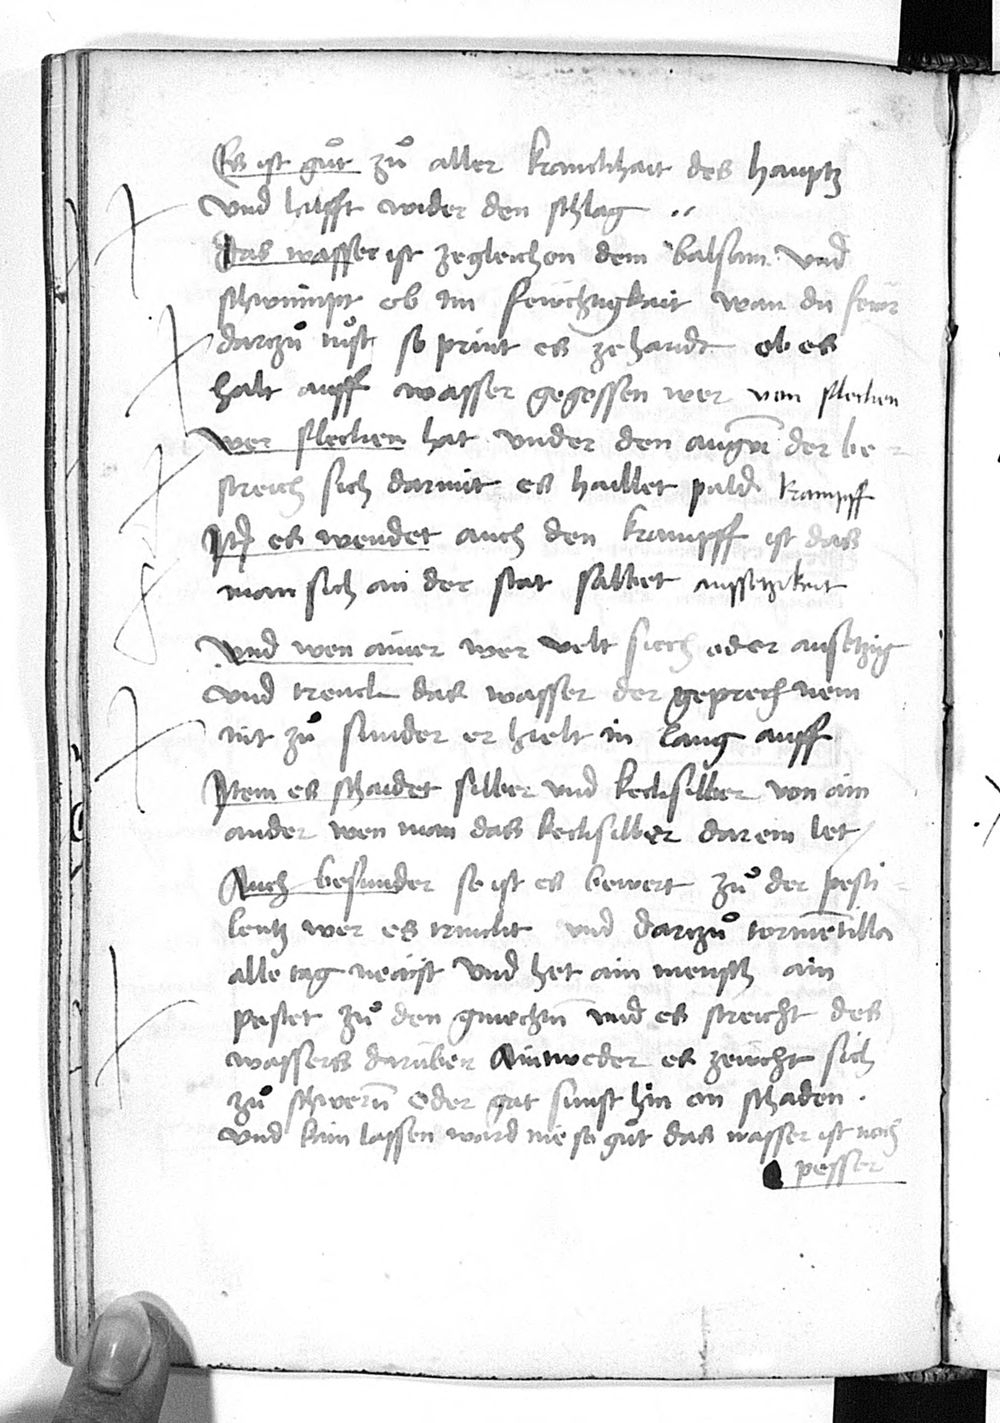 Es ist gůt zů aller kranckhait des hauptz
vnd hilfft wider den schlag
Das wasser ist zegleichen dem balsam vnd
schwimpt ob im feüchtigkait wan du feür
darzů tůst so print es zehandt ob es
halt auff wasser gegossen wer von flecken
wer flecken hat vnder den augn̄ der be-
streich sich darmit es haillet pald krampff
Itē es wendet auch den krampff ist das
man sich an der stat salbet aussetzikait
vnd wen ainer wer velt siech oder ausetzig
vnd trenck das wasser der geprech nem
nit zů sunder er hielt in lang auff
Item es schaidet silber vnd kecksilber von ain
ander wen man das kecksilber darein let
Auch besunder so ist es bewert zů der pesti-
lentz wer es trinckt vnd darzů tormētilla
alle tag neüst vnd het ain mensch ain
pestet zů den gmechtn̄ vnd es streicht des
wassers darüber Aintweder es zeücht sich
zů schwern̄ oder gat sunst hin on schaden .
vnd kain lassen ward nie so gůt das wasser ist noch
pesser